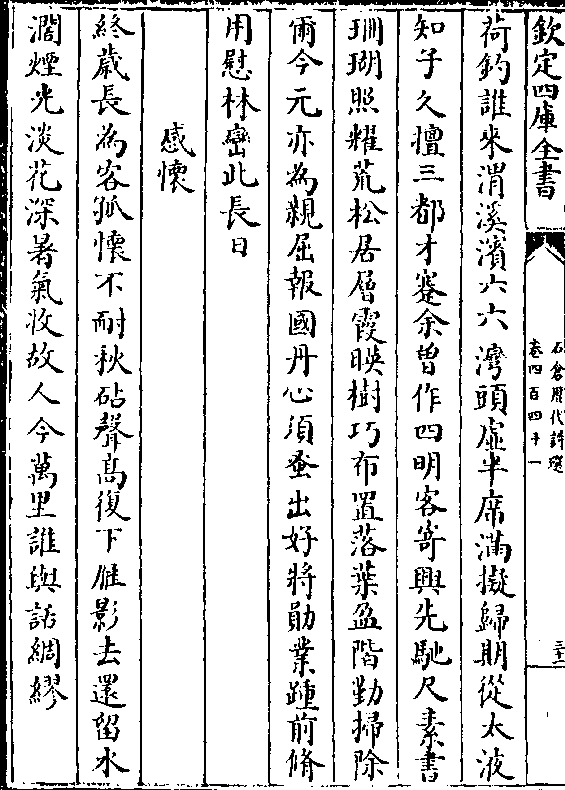 欽定四庫全書
石倉歷代詩選
卷四百四十一
三十二
荷釣誰來渭溪濱六六灣頭虛半席滿擬歸期從太液
知子久擅三都才蹇余曽作四明客寄興先馳尺素書
珊瑚照耀荒松居層霞暎樹巧布置落葉盈階勤掃除
爾今元亦為親屈報國丹心須蚤出好將勛業踵前脩
用慰林巒此長日
感懷
終歲長為客孤懷不耐秋砧聲髙復下雁影去還留水
濶煙光淡花深暑氣收故人今萬里誰與話綢繆